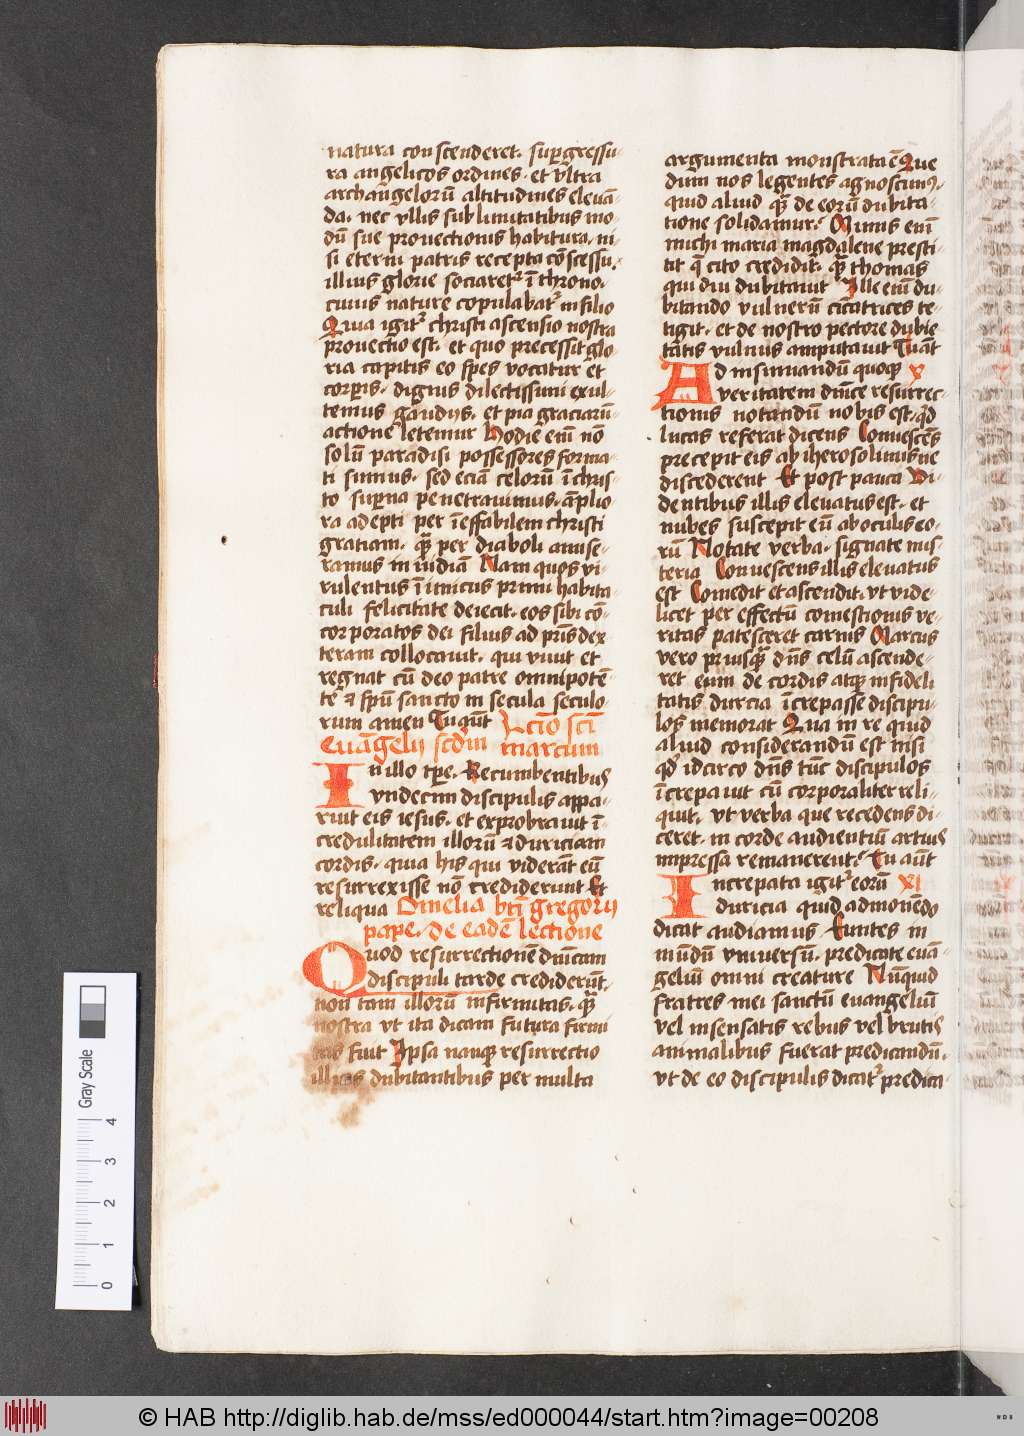 natura conscenderet. sup̲gressu-
ra angelicos ordines. et vltra
archangeloru̅ altitudines eleua̅-
da. nec vllis sublimitatibus mo-
du̅ sue prouectionis habitura. ni-
si eterni patris recepta co̅scessu.
illius glorie sociaret᷑ i̅ throno.
cuius nature copulabat᷑ in filio
Quia igit᷑ christi ascensio nostra
prouectio est. et quo precessit glo-
ria capitis eo spes vocatur et
corp̲is. dignis dilectissimi exul-
temus gaudijs. et pia graciaru̅
actione letemur Hodie eni̅ no̅
solu̅ paradisi possessores forma-
ti sumus. sed ecia̅ celoru̅ i̅ chris-
to sup̲na penetrauimus. a̅plio-
ra adepti per i̅effabilem christi
gratiam. qua̅ per diaboli amise-
ramus inuidia̅ Nam quos vi-
rulentus i̅imicus primi habita-
culi felicitate deiecit. eos sibi co̅-
corporatos dei filius ad p̲ris dex
teram collocauit. qui viuit et
regnat cu̅ deo patre omnipote̅-
te ⁊ sp̅u sancto in secula seculo-
rum amen Tu aut̅ Lc̅io sc̅i
Eua̅gelij sc̅d̅m marcum
In illo tp̅re. Recumbentibus
vndecim discipulis appa-
ruit eis iesus. et exprobrauit i̅-
credulitatem illoru̅ ⁊ duriciam
cordis. quia his qui videra̅t eu̅
resurrexisse no̅ crediderunt Et
reliqua Omelia bt̅i gregorij
pape. de eade̅ lectione
Quod resurrectione̅ d̅nicam
discipuli tarde crediderut̅.
non tam illoru̅ infirmitas. qua̅
nostra vt ita dicam futura firmi
tas fuit Ipsa namq̲ resurrectio
illius dubitantibus per multa
argumenta monstrata e̅ Que
dum nos legentes agnoscim᷒.
quid aliud qua̅ de eoru̅ dubita-
tione solidamur. Minus eni̅
michi maria magdalene presti-
tit q̅ cito credidit. qua̅ thomas
qui diu dubitauit Ille eni̅ du-
bitando vulneru̅ cicatrices te-
tigit. et de nostro pectore dubie
tatis vulnus amputauit Tu aut̅
Ad insinuandu̅ quoq̲ x
veritatem d̅nice resurrec-
tionis notandu̅ nobis est. q̅d
lucas referat dicens Conuesce̅s
precepit eis ab iherosolimis ne
discederent Et post pauca Vi-
dentibus illis eleuatus est. et
nubes suscepit eu̅ ab oculis eo-
ru̅ Notate verba. signate mis-
teria Conuescens illis eleuatus
est Comedit et ascendit. vt vide-
licet per effectu̅ comestionis ve-
ritas patesceret carnis Marcus
vero priusq̅ d̅ns celu̅ ascende-
ret eum de cordis atq̲ infideli
tatis duricia i̅crepasse discipu-
los memorat Qua in re quid
aliud considerandu̅ est nisi
q̅d idcirco d̅ns tu̅c discipulos
i̅crepauit cu̅ corporaliter reli-
quit. vt verba que recedens di-
ceret. in corde audientiu̅ artius
impressa remanerent. Tu aut̅
Increpata igit᷑ eoru̅ xi
duricia quid admone̅do
dicat audiamus Euntes in
mu̅du̅ vniuersu̅. predicate eua̅-
geliu̅ omni creature Nu̅quid
fratres mei sanctu̅ euangeliu̅
vel insensatis rebus vel brutis
animalibus fuerat predicandu̅.
vt de eo discipulis dicat᷑ predica-
Gray Scale
0 1 2 3 4
© HAB http://diglib.hab.de/mss/ed000044/start.htm?image=00208